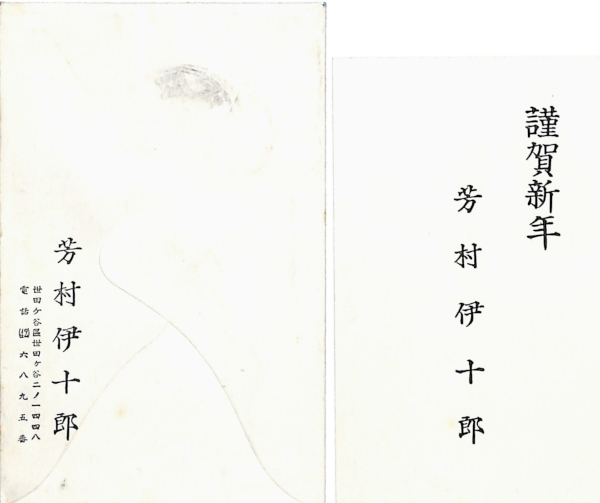 謹賀新年
芳村伊十郎
芳村伊十郎
世田ケ谷區世田ヶ谷二ノ一四四八
電話 六八九五番